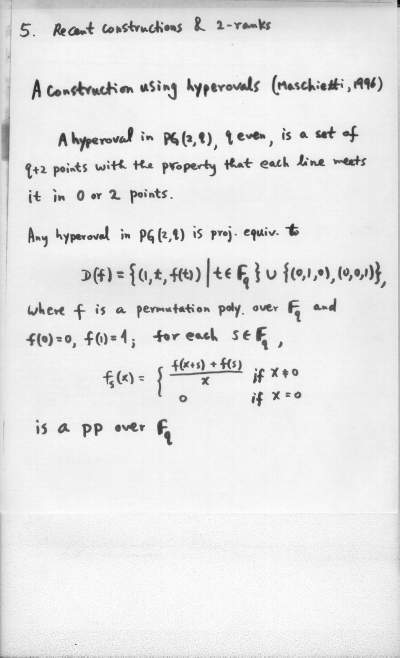 5. Recent constructions & 2-ranks
A construction using hyperovals (Maschietti, 1996)
A hyperoval in PG(2,q), q even, is a set of
q+2 points with the property that each line meets
it in 0 or 2 points.
Any hyperoval in PG(2,q) is proj. equiv. to
D(f) = {(1, t, f(t)) | t ∈ F_q} ∪ {(0,1,0), (0,0,1)},
where f is a permutation poly. over F_q and
f(0)=0, f(1)=1; for each s ∈ F_q,
f_s(x) = { (f(x+s) + f(s))/x if x ≠ 0
0 if x = 0
is a pp over F_q